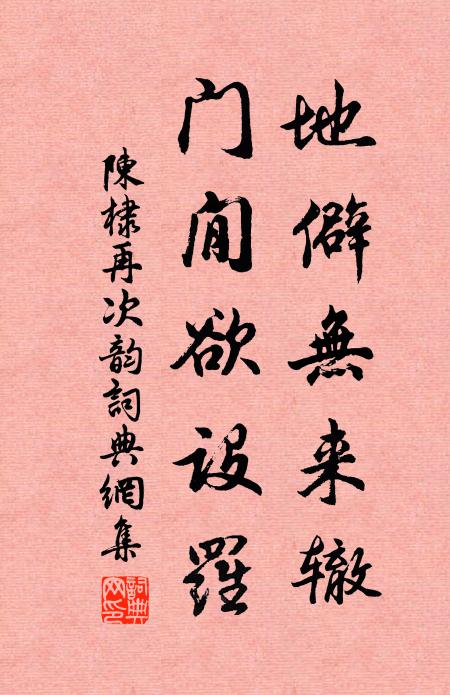 地僻無来辙
门闲欲设羅
陳棣再次韵詞典網集
詞典网印